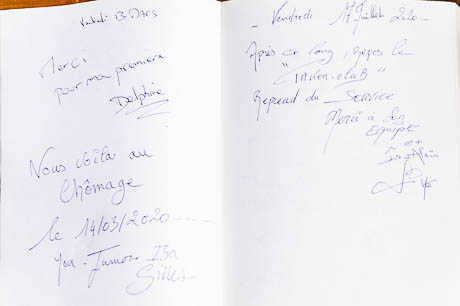 Vendredi 13 Mars
Merci
pour ma première
Delphine
Nous voilà au
Chômage
le 14/03/2020
You - Junior - Isa
Gilles
- Vendredi 17 Juillet 2020 -
Après ce long, repos le
Reprend du Service
Merci a Son
Equipe
et